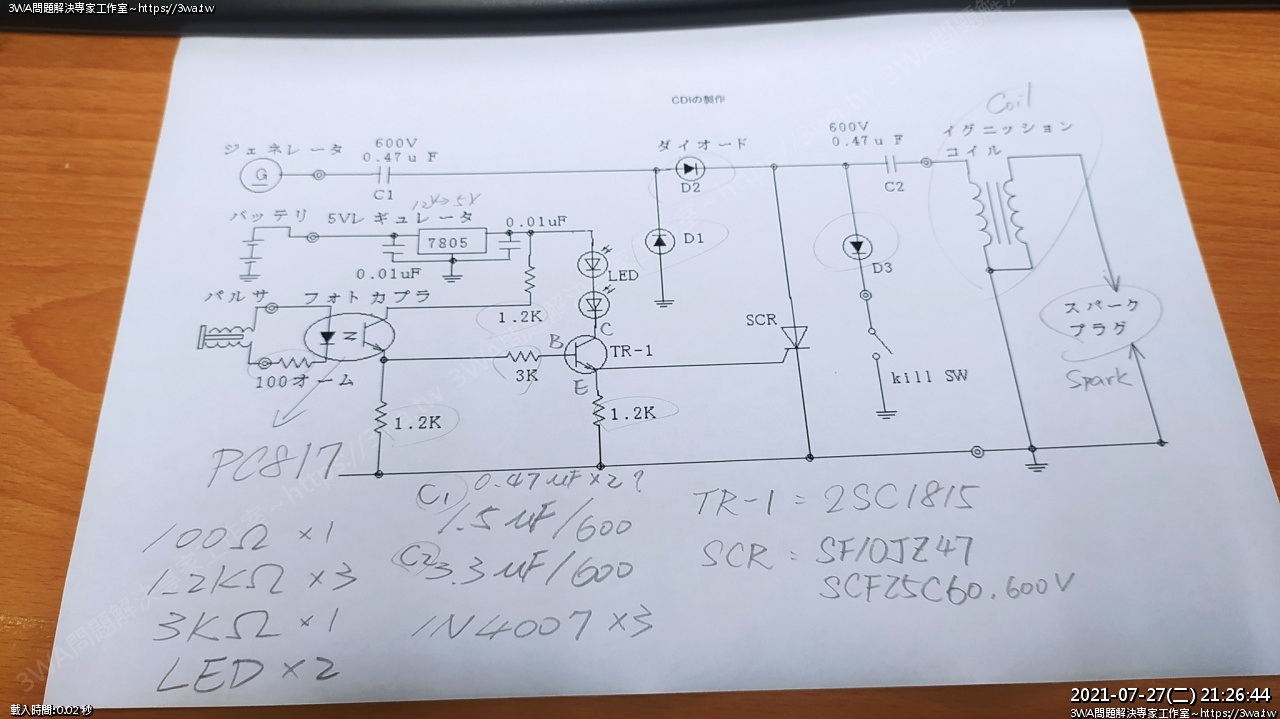 3WA問題解決專家工作室~https://3wa.tw
CDIの製作
Coil
ジェネレータ
600V
0.47uF
ダイオード
600V
0.47uF
イグニッション
コイル
G
C1
D2
C2
バッテリ
5Vレギュレータ
12V→5V
0.01uF
7805
D1
D3
0.01uF
LED
パルサ
フォトカプラ
1.2K
C
B
TR-1
SCR
スパーク
プラグ
100オーム
3K
E
kill SW
Spark
1.2K
1.2K
PC817
C1
0.47uF×2?
1.5uF/600
TR-1=2SC1815
100Ω ×1
C2
3.3uF/600
SCR: SF10JZ47
1.2KΩ ×3
SCF25C60.600V
3KΩ ×1
1N4007 ×3
LED ×2
載入時間:0.02 秒
2021-07-27(二) 21:26:44
3WA問題解決專家工作室~https://3wa.tw